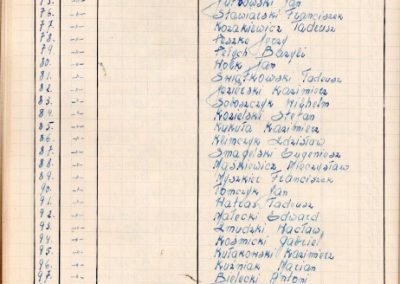 75. -"- Jan
76. -"- Stawiarski Franciszek
77. -"- Kozakiewicz Tadeusz
78. -"- Peszko Jerzy
79. -"- Pelech Bazyli
80. -"- Jan
81. -"- Świątkowski Tadeusz
82. -"- Kazimierz
83. -"- Soboszczyk Wilhelm
84. -"- Kozielski Stefan
85. -"- Kukuła Kazimierz
86. -"- Klimczyk Zdzisław
87. -"- Smagelski Eugeniusz
88. -"- Maśkiewicz Mieczysław
89. -"- Myszkier Franciszek
90. -"- Tomczyk Jan
91. -"- Tadeusz
92. -"- Małecki Edward
93. -"- Żmudzki Wacław
94. -"- Kośmicki Gabriel
95. -"- Kułakowski Kazimierz
96. -"- Kuźniak Marian
97. -"- Bielecki Antoni